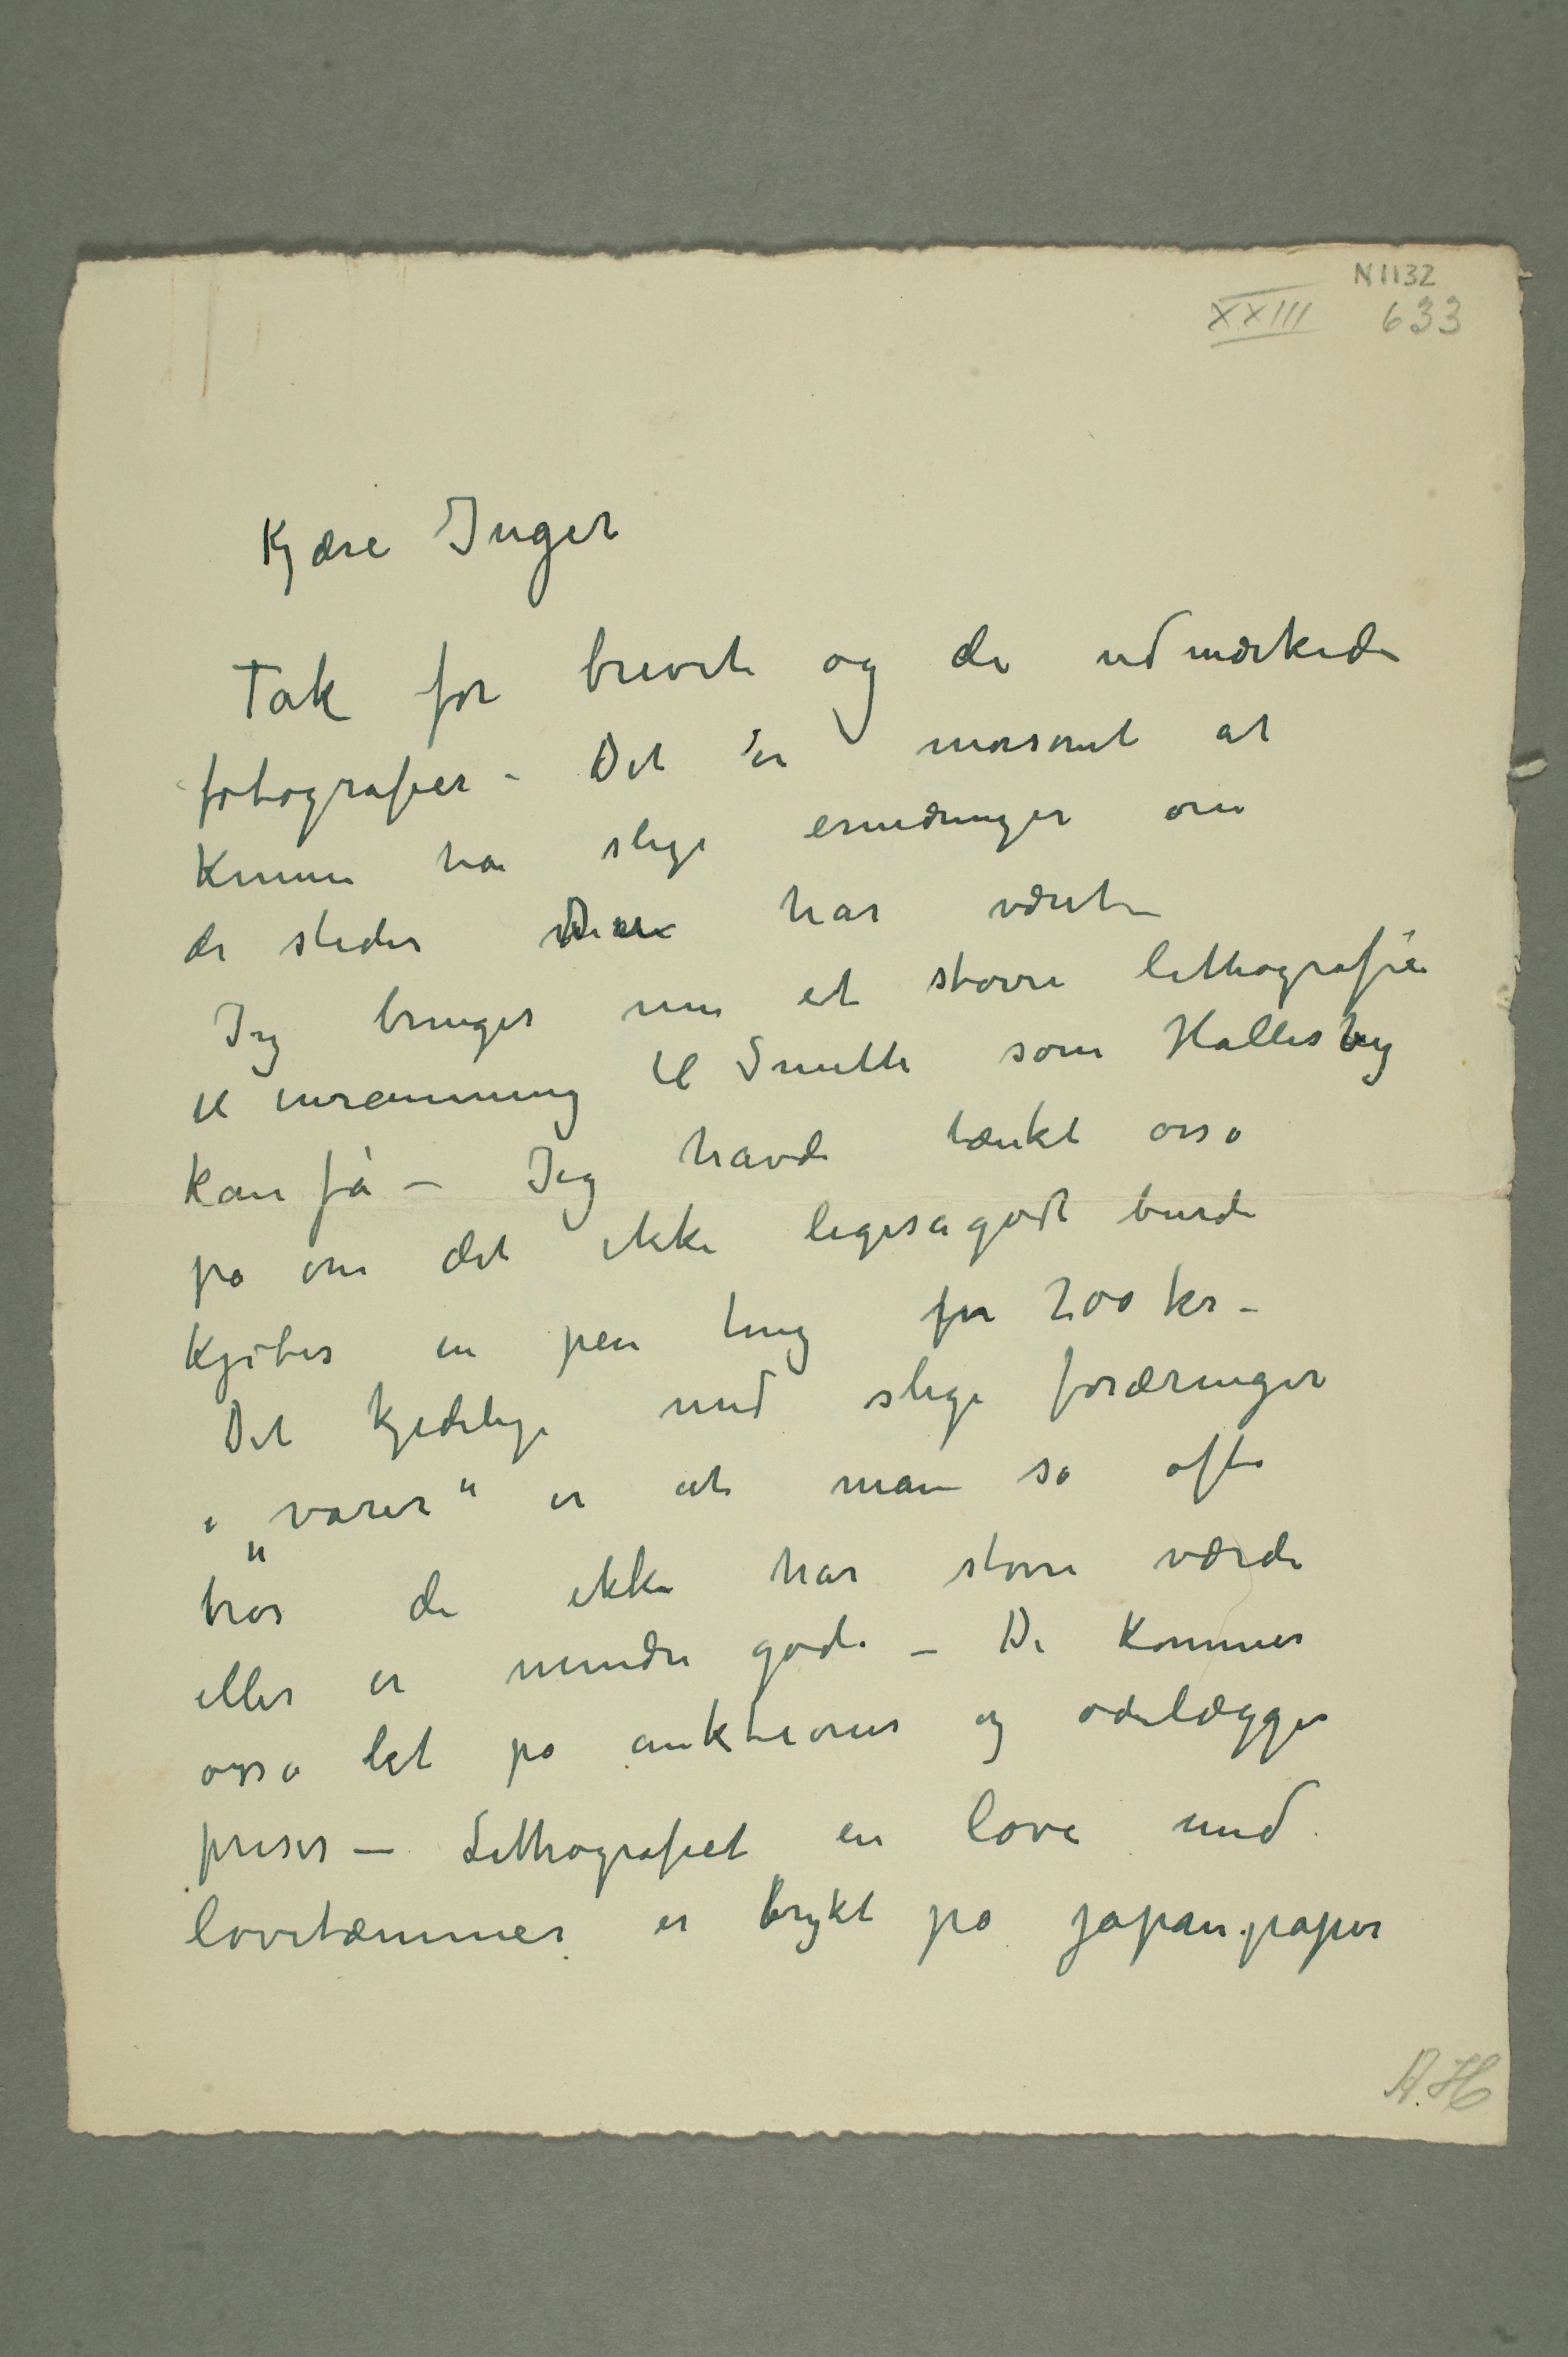 N1132
XXIII 633
Kjære Inger
Tak for brevet og de udmærkede
fotografier – Det er morsomt at
kunne ha slige erindringer om
de steder man har været –
Jeg bringer nu et større lithografie
til inramming til Smith som Hallesby
kan få – Jeg havde tænkt osså
på om det ikke ligeså godt burde
kjøbes en pen ting for 200 kr –
Det kjedelige med slige foræringer
i „varer“ er at man så ofte
tror de ikke har større værdi
eller er mindre gode – De kommer
osså let på auktioner og ødelægger
priser – Lithografiet en løve med
løvetæmmer er trykt på japan.papir
A.H